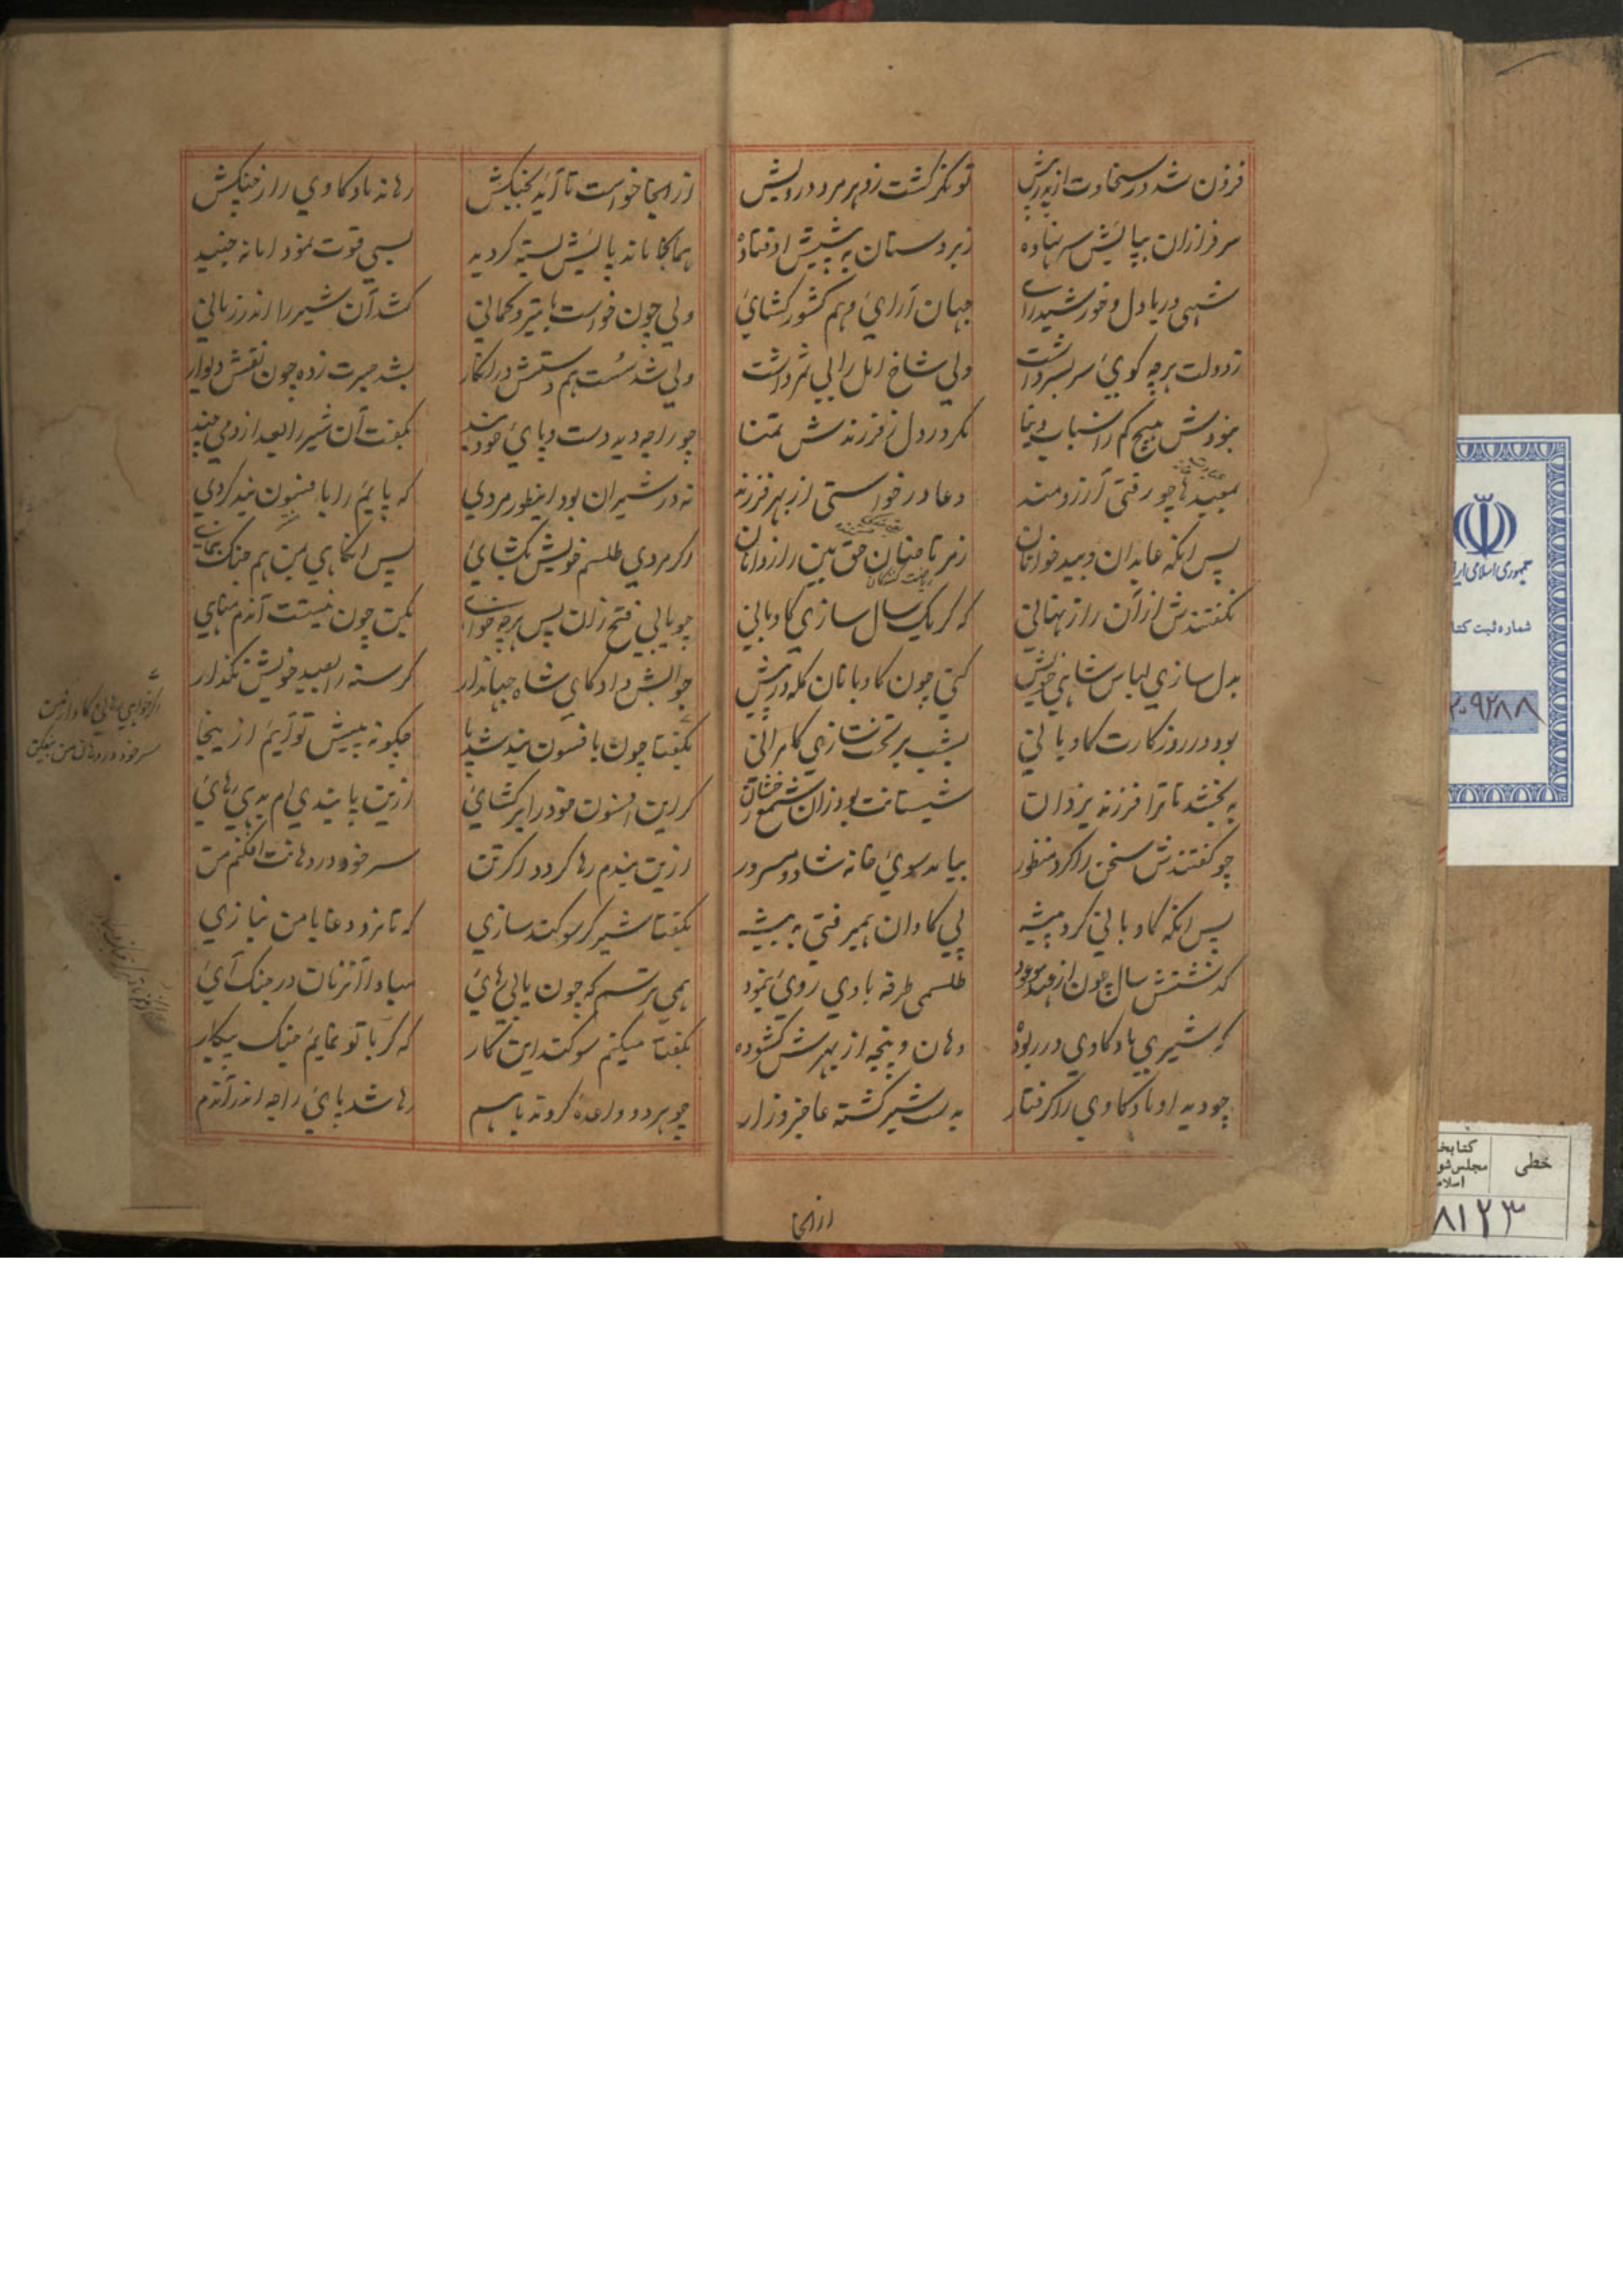 فزون شد در سخاوت از پدر پیش تونکر کشت زو هر مرد درویش
سرفرازان بپایش سر نهاده زبردستان به پیشش اوفتاده
شهی دریا دل و خورشید رای جهان آرای و هم کشور کشای
زدولت هرچه کوئ سربسر داشت ولی شاخ امل را بی ثمر داشت
نبودش هیچ کم ز اسباب دنیا مکر در دل ز فرزندش تمنا
بمعبدها چو رفتی آرزومند دعا درخواستی از بهر فرزند
پس انکه عابدان و بیدخوانان زمرتاضنان حق بین رازدانان
نکفتندش از آن راز نهانی که کر یک سال سازی کاوبانی
بدل سازی لباس شاهی خویش کنی چون کاوبانان کله در پیش
بود در روز کارت کاوبانی بشب بر تخت سازی کامرانی
به بخشد تا ترا فرزند یزدان شبستانت بود زان شمع رخشان
چو کفتندش سخن را کرد منظور بیامد سوئ خانه شاد و مسرور
پس انکه کاوبانی کرد پیشه پی کاوان همیرفتی به بیشه
کذشتش سال چون از وعده موعود طلسمی طرفه بادی روی نمود
که شیری باد کاوی در ربوده دهان و پنجه از بهرش کشوده
چو دید او باد کاوی را کرفتار بدست شیر کشته عاجز و زار
ازانجا
ازانجا خواست تا آید بجنکش رهاند باد کاوی را ز چنکش
همانجا ماند پایش بسته کردید بسی قوت نمود اما نه جنبید
ولی چون خواست با تیر و کمانی کشد آن شیر را اندر زمانی
ولی شد سست هم دستش در انکار بشد حیرت زده چون نقش دیوار
چو راجه دید دست و پای خود بند بکفت آن شیر را بعد از دمی چند
نه در شیران بود اینطور مردی که پایم را بافسون بند کردی
اکر مردی طلسم خویش بکشای پس انکاهی بمن هم جنک بنمای
چو یابی فتح زان پس هرچه خواهی بکن چون نیستت آندم مناهی
جوابش داد کای شاه جهاندار کرسنه را بصید خویش نکذار
بکفتا چون بافسون بند شد پا چکونه پیش تو آیم از ینجا
کر این افسون خود را بر کشای ازین پابندی ام بدهی رهای
ازین بندم رها کردد اکر تن سر خود در دهانت افکنم من
بکفتا شیر کر سوکند سازی که تا نزد دغا با من نبازی
همی ترسم که چون یابی رهای مبادا آنزمان در جنک آی
بکفتا میکنم سوکند این کار که کر با تو نمایم جنک پیکار
چو هر دو وعده کردند باهم رها شد پای راجه اندر آندم
اکر خواهی رهائی کاو ازمن
سر خود در دهان من بیفکن
جمهوری اسلامی ایران
شماره ثبت کتاب
۲۰۹۲۸۸
خطی
کتابخانه
مجلس شورای
اسلامی
۸۱۲۳